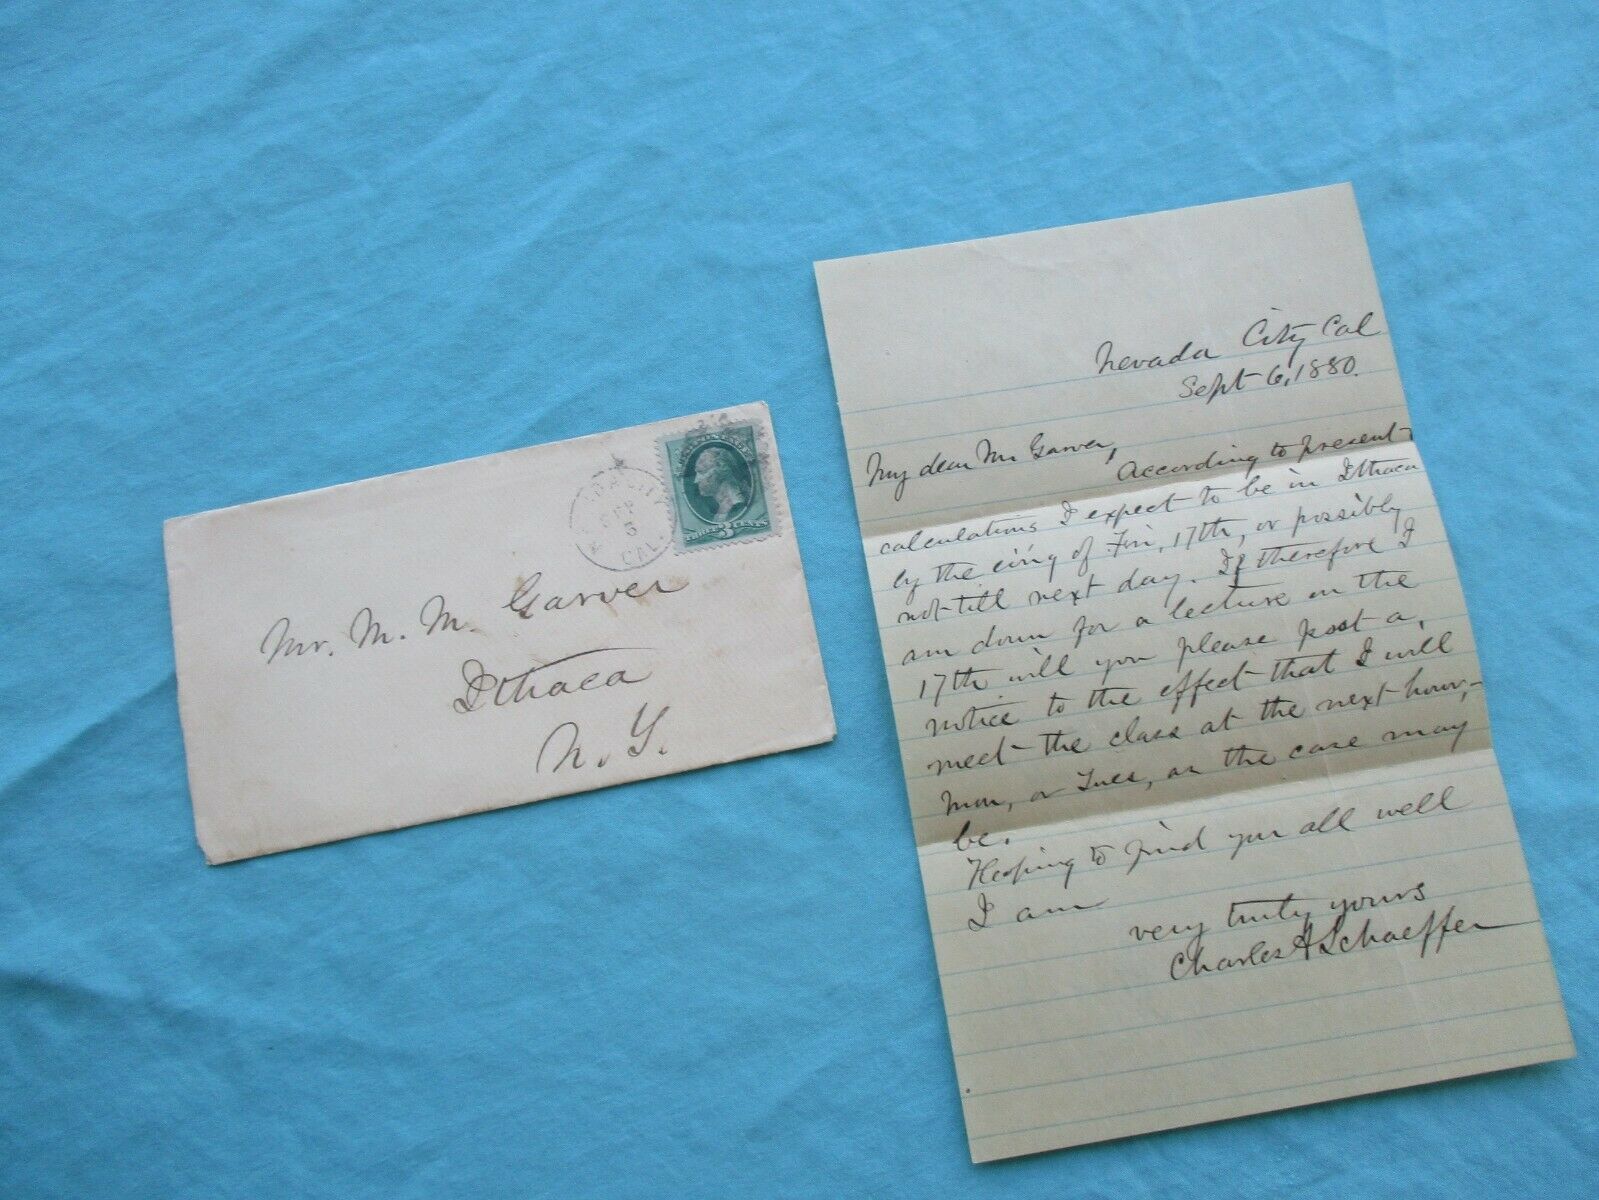 NEVADA CITY
SEP
5
CAL.
THREE 3 CENTS
Mr. M. M. Garver
Ithaca
N. Y.
Nevada City Cal
Sept 6, 1880.
My dear Mr Garver,
According to present
calculations I expect to be in Ithaca
by the ev'ng of Fri, 17th, or possibly
not till next day. If therefore I
am down for a lecture on the
17th will you please post a
notice to the effect that I will
meet the class at the next hour,-
Mon, or Tues, as the case may
be.
Hoping to find you all well
I am
very truly yours
Charles A Schaeffer